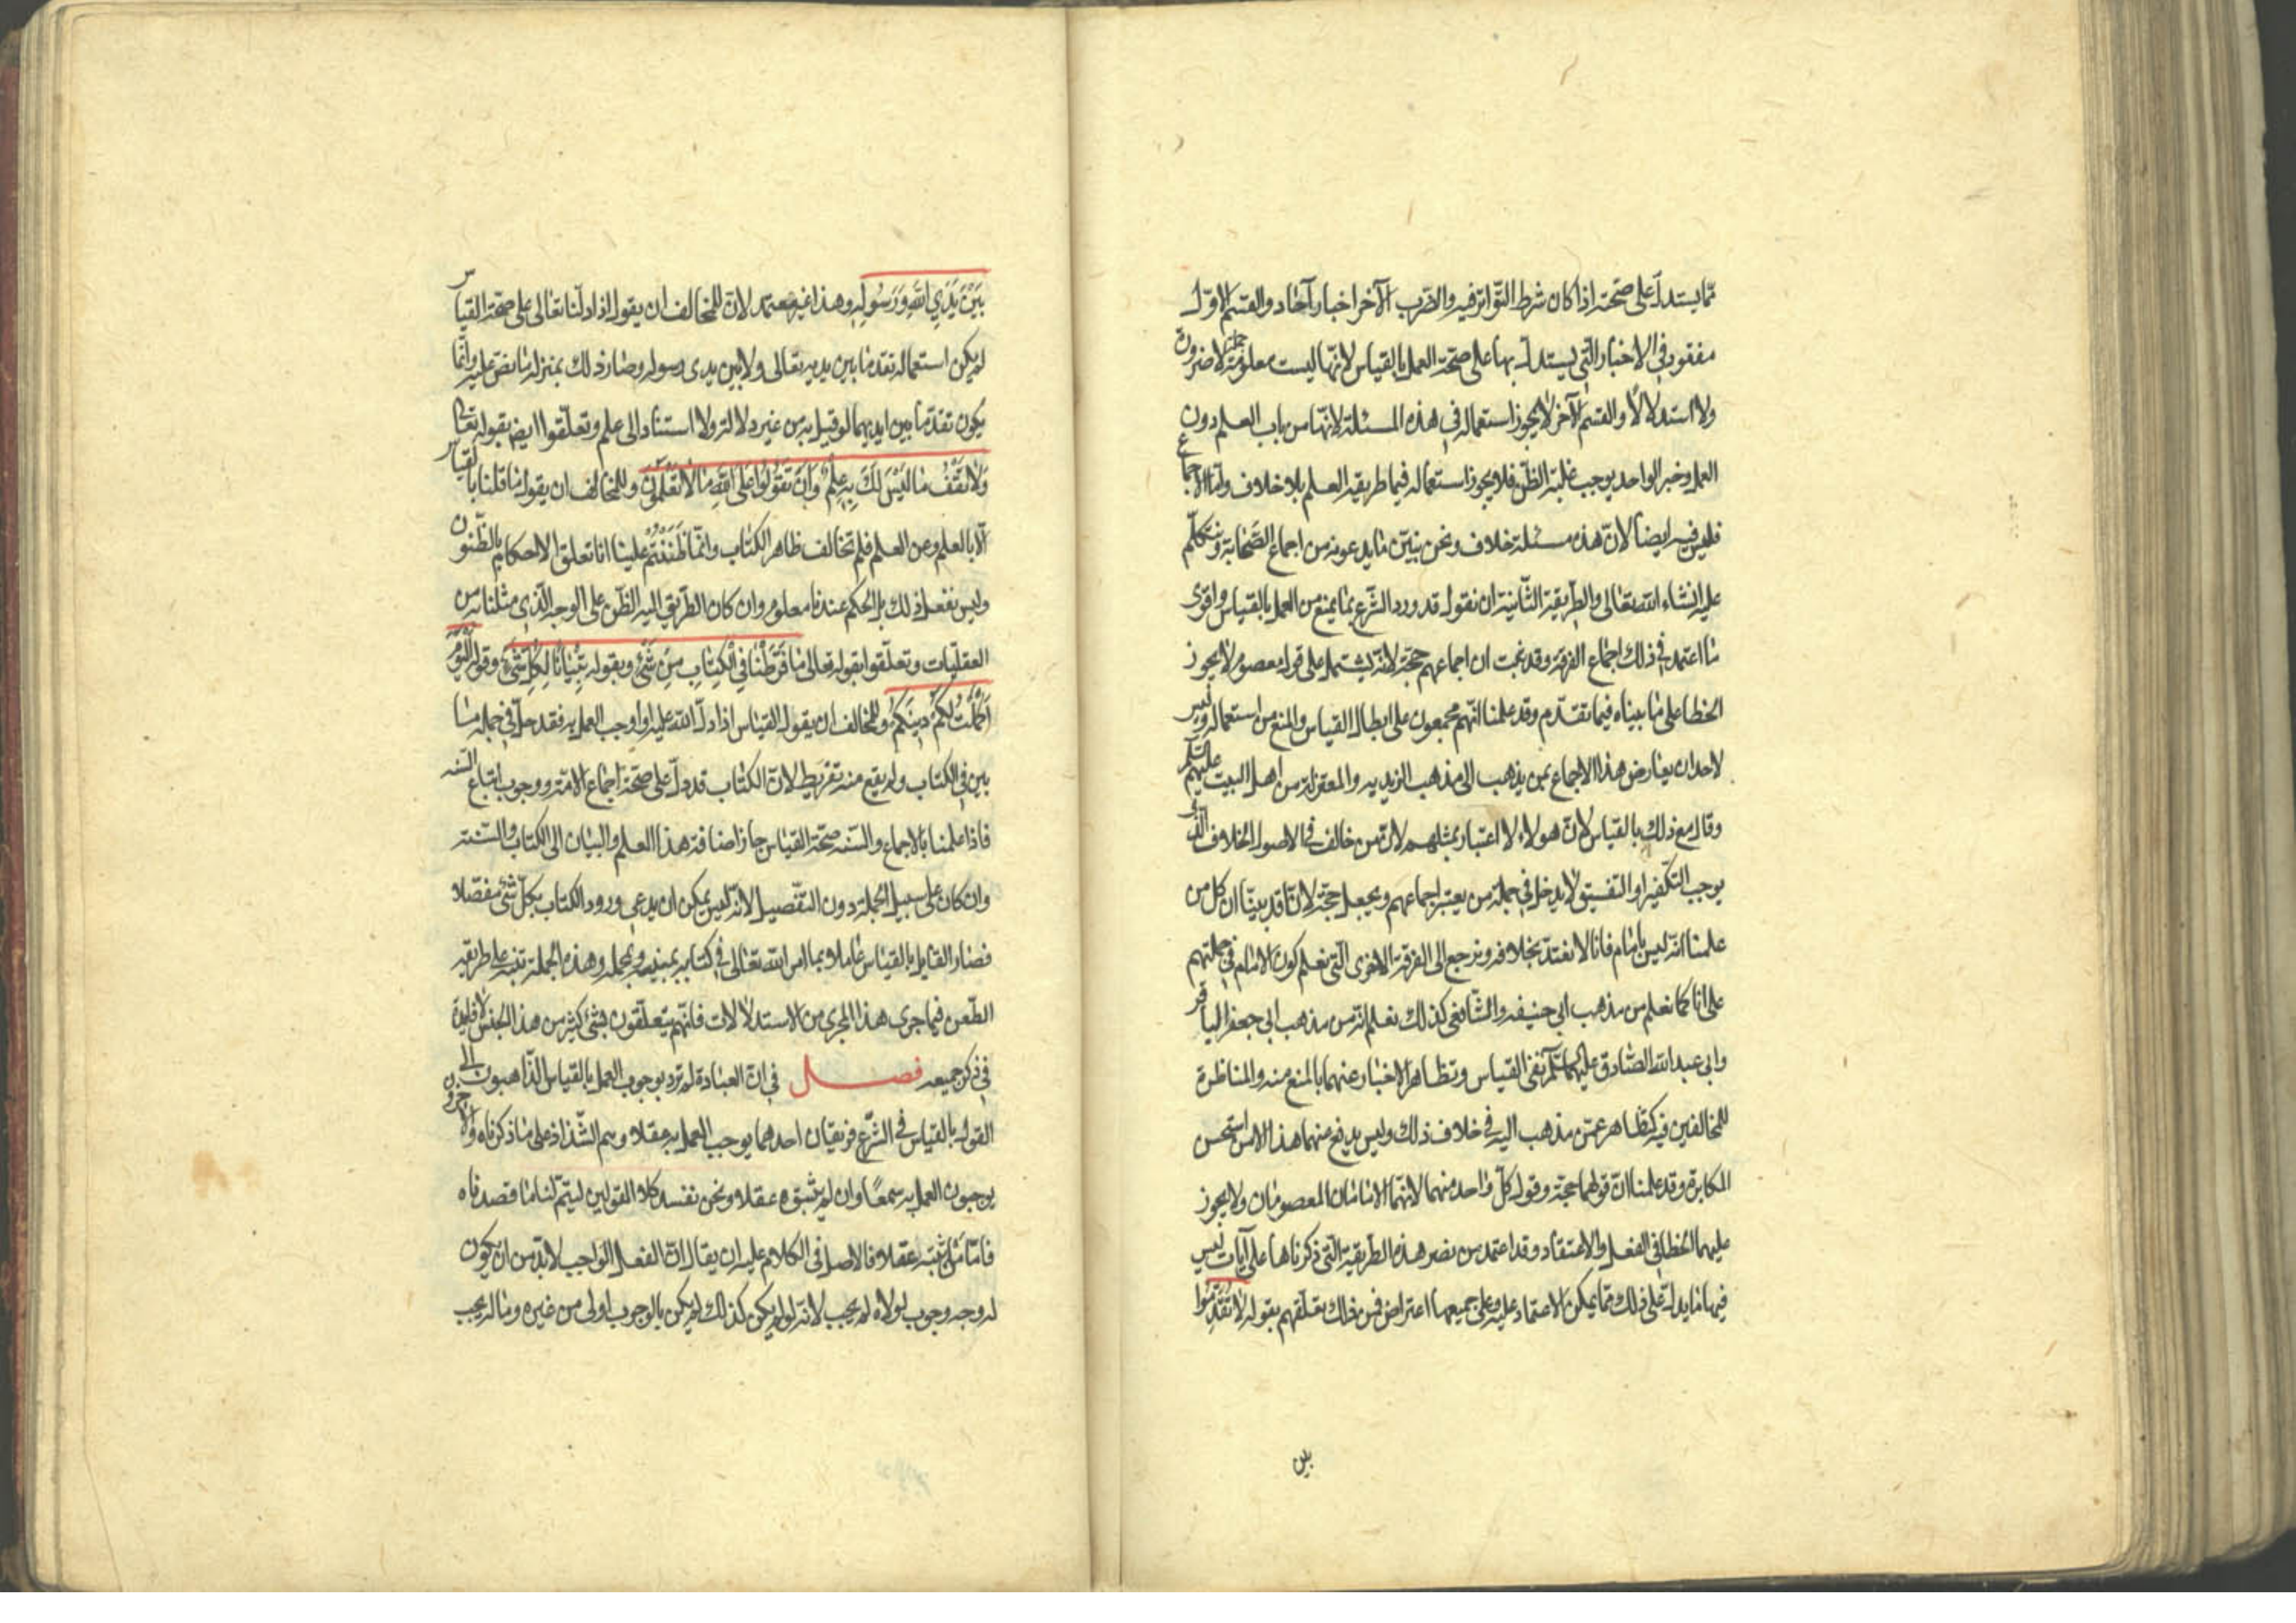 مما يستدل على صحته اذا كان شرط التواتر فيه والضرب الآخر اخبار آحاد والقسم الاول
مفقود في الاخبار التي يستدل بها على صحة العمل بالقياس لانها ليست معلومة جملة لا ضرورة
ولا استدلالا والقسم الآخر لا يجوز استعماله في هذه المسئلة لانها من باب العلم دون
العمل وخبر الواحد يوجب غلبة الظن فلا يجوز استعماله فيما طريقه العلم بلا خلاف واما الاجماع
فليس فيه ايضا لان هذه مسئلة خلاف ونحن نبين ما يدعونه من اجماع الصحابة ونتكلم
عليه انشاء الله تعالى والطريقة الثانية ان نقول قد ورد الشرع بما يمنع من العمل بالقياس واقوى
ما اعتمد في ذلك اجماع الفرقة وقد ثبت ان اجماعهم حجة لانه يشتمل على قول معصوم لا يجوز
الخطا على ما بيناه فيما تقدم وقد علمنا انهم مجمعون على ابطال القياس والمنع من استعماله وليس
لاحد ان يعارض هذا الاجماع بمن يذهب الى مذهب الزيديه والمعتزلة من اهل البيت عليهم السلم
وقال مع ذلك بالقياس لان هولاء لا اعتبار بمثلهم لان من خالف في الاصول الخلاف الذي
يوجب التكفير او التفسيق لا يدخل في جملة من يعتبر اجماعهم ويجعل حجة لانا قد بينا ان كل من
علمنا انه ليس بامام فانا لا نعتد بخلافه ونرجع الى الفرقة الاخرى التي نعلم كون الامام في جملتهم
على انا كما نعلم من مذهب ابي حنيفه والشافعي كذلك نعلم انه من مذهب ابي جعفر الباقر
وابي عبد الله الصادق عليهما السلم نفي القياس وتظاهر الاخبار عنهما بالمنع منه والمناظرة
للمخالفين فيه كتظاهر عمن مذهب اليه في خلاف ذلك وليس يدفع عنهما هذا الا من استحسن
المكابرة وقد علمنا ان قولهما حجة وقول كل واحد منهما لانهما الامامان المعصومان ولا يجوز
عليهما الخطا في الفعل والاعتقاد وقد اعتمد من نصر هذه الطريقة التي ذكرناها على آيات ليس
فيها ما يدل على ذلك مما يمكن الاعتماد عليه وعلى جميعها اعتراض فمن ذلك تعلقهم بقوله لا تُقَدِّمُوا
بين
بَيْنَ يَدَيِ اللهِ وَرَسُولِهِ وهذا غير معتمد لان للمخالف ان يقول اذا دلنا تعالى على صحة القياس
لم يكن استعماله تقدما بين يديه تعالى ولا بين يدى رسوله وصار ذلك بمنزلة ما نص عليه وانما
يكون تقدما بين ايديهما لو قيل به من غير دلالة ولا استناد الى علم وتعلقوا ايضا بقوله تعالى
وَلَا تَقْفُ مَا لَيْسَ لَكَ بِهِ عِلْمٌ وَاَنْ تَقُولُوا عَلَى اللهِ مَا لَا تَعْلَمُونَ وللمخالف ان يقول ما قلنا بالقياس
الا بالعلم وعن العلم فلم تخالف ظاهر الكتاب وانما ظَنَنْتُمْ علينا انا تعلق الاحكام بالظنون
وليس نفعل ذلك بل الحكم عندنا معلوم وان كان الطريق اليه الظن على الوجه الذي مثلنا به من
العقليات وتعلقوا بقوله تعالى مَا فَرَّطْنَا فِي الْكِتَابِ مِنْ شَيْءٍ وبقوله تِبْيَانًا لِكُلِّ شَيْءٍ وقوله اَلْيَوْمَ
اَكْمَلْتُ لَكُمْ دِينَكُمْ وللمخالف ان يقول القياس اذا دل الله عليه واوجب العمل به فقد دخل في جملة ما
بين في الكتاب ولم يقع منه تفريط لان الكتاب قد دل على صحة اجماع الامة ووجوب اتباع السنه
فاذا علمنا بالاجماع والسنه صحة القياس جاز اضافة هذا العلم والبيان الى الكتاب والسنة
وان كان على سبيل الجملة دون التفصيل لانه ليس يمكن ان يدعى ورود الكتاب بكل شئ مفصلا
فصار القايل بالقياس عاملا بما امر الله تعالى في كتابه بمبينه ومجمله وهذه الجملة تنبه على طريقة
الطعن فيما جرى هذا المجرى من الاستدلالات فانهم يتعلقون بشئ كثير من هذا الجنس لا فايدة
في ذكر جميعه فصل في ان العبادة لم ترد بوجوب العمل بالقياس الذاهبون الى
القول بالقياس في الشرع فريقان احدهما يوجب العمل به عقلا وهم الشذاذ على ما ذكرناه والآخرون
يوجبون العمل به سمعًا وان لم يثبتوه عقلا ونحن نفسد كلا القولين ليتم لنا ما قصدناه
فاما من اثبته عقلا فالاصل في الكلام عليه ان يقال ان الفعل الواجب لا بد من ان يكون
له وجه وجوب لولاه لم يجب لانه لو لم يكن كذلك لم يكن بالوجوب اولى من غيره وما له يجب